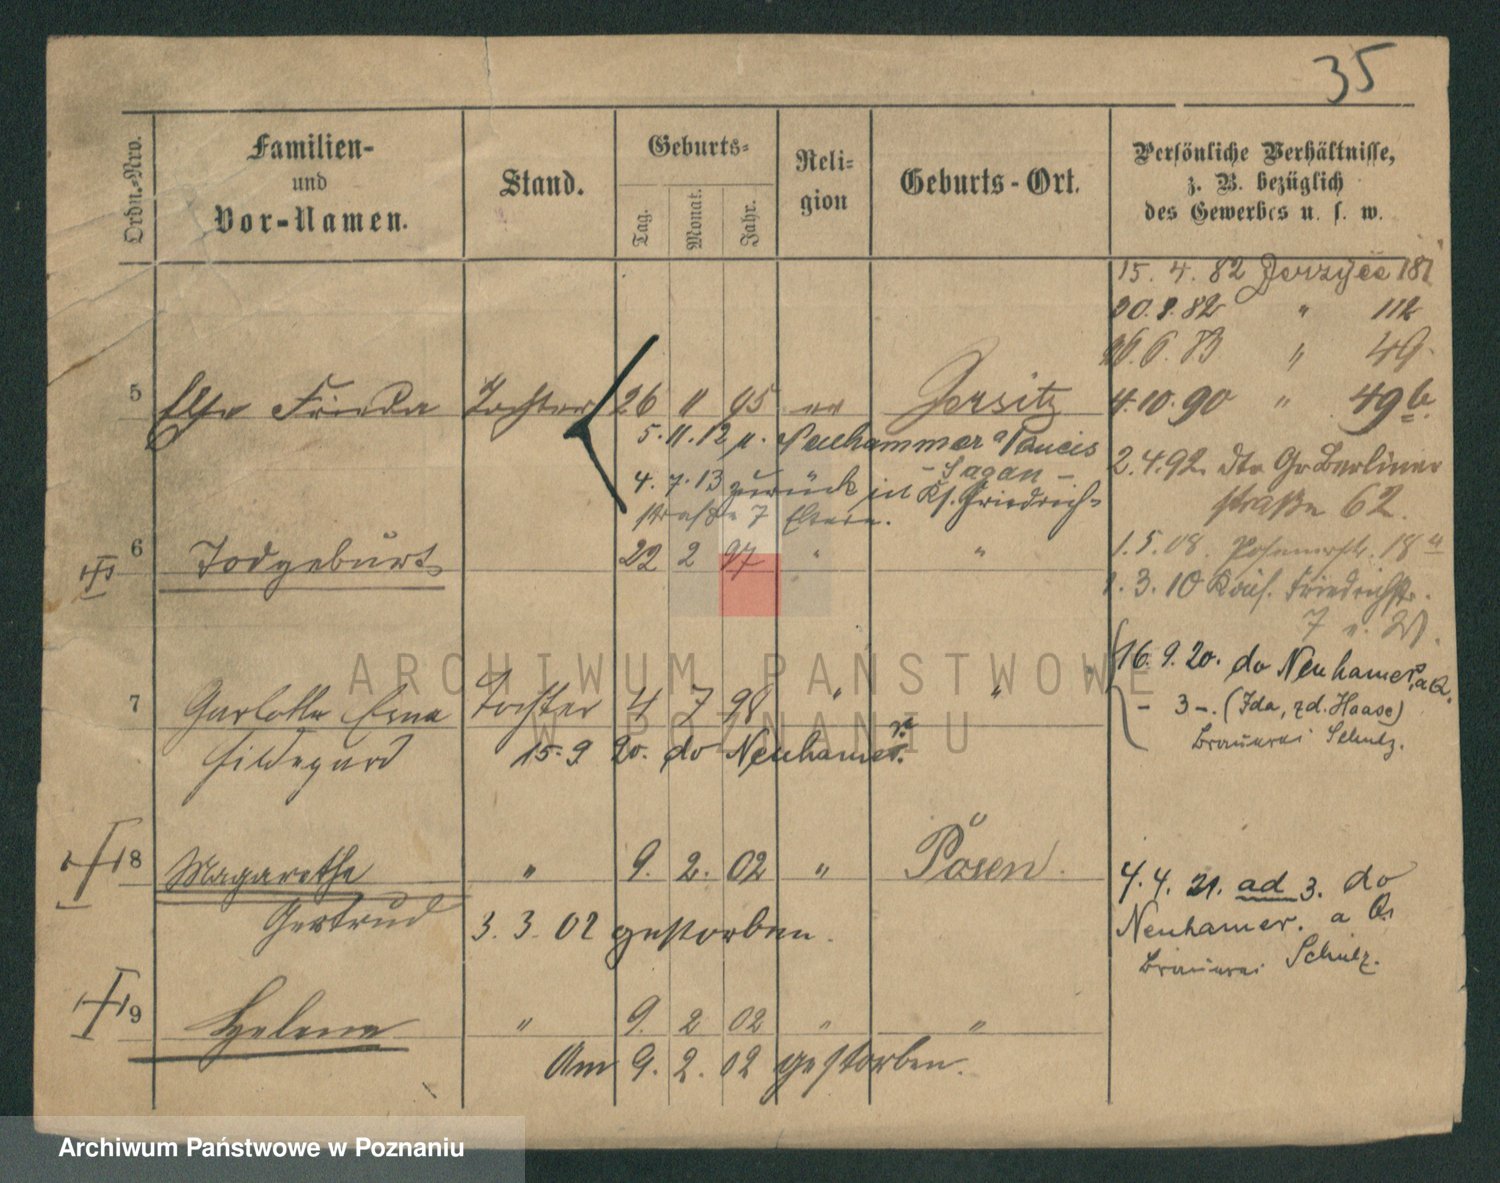 35
Ordn.-Nro.
Familien-
und
Vor-Namen.
Stand.
Geburts-
Tag.
Monat.
Jahr.
Reli-
gion
Geburts-Ort.
Persönliche Verhältnisse,
z. B. bezüglich
des Gewerbes u. s. w.
15. 4. 82 Jerzyce 187
30. 9. 82 " 112
26. 6. 83 " 49.
4. 10. 90 " 49b.
2. 4. 92. dto Gr. Berliner
straße 62.
1. 5. 08. Posenerstr. 18a
1. 3. 10 Kais. Friedrichstr.
7
16. 9. 20. do Neuhamer a Q.
- 3 -. (Ida, zd. Haase)
Brauerei Schulz.
5 Else Frieda Tochter 26 11 95 ev Jersitz
5. 11. 12 n. Neuhammer a
- Sagan -
4. 7. 13 zurück in Ks. Friedrich-
straße 7 Eltern.
6 Todgeburt 22 2 97 " "
7 Charlotte Erna Tochter 4 7 98 " "
Hildegard 15. 9 20. do Neuhamer.
8 Magarethe " 9. 2. 02 " Posen.
Gertrud 3. 3. 02 gestorben.
4. 4. 21. ad 3. do
Neuhamer. a Q.
Brauerei Schulz.
9 Helene " 9. 2 02 " "
Am 9. 2. 02 gestorben.
ARCHIWUM PAŃSTWOWE
W POZNANIU
Archiwum Państwowe w Poznaniu